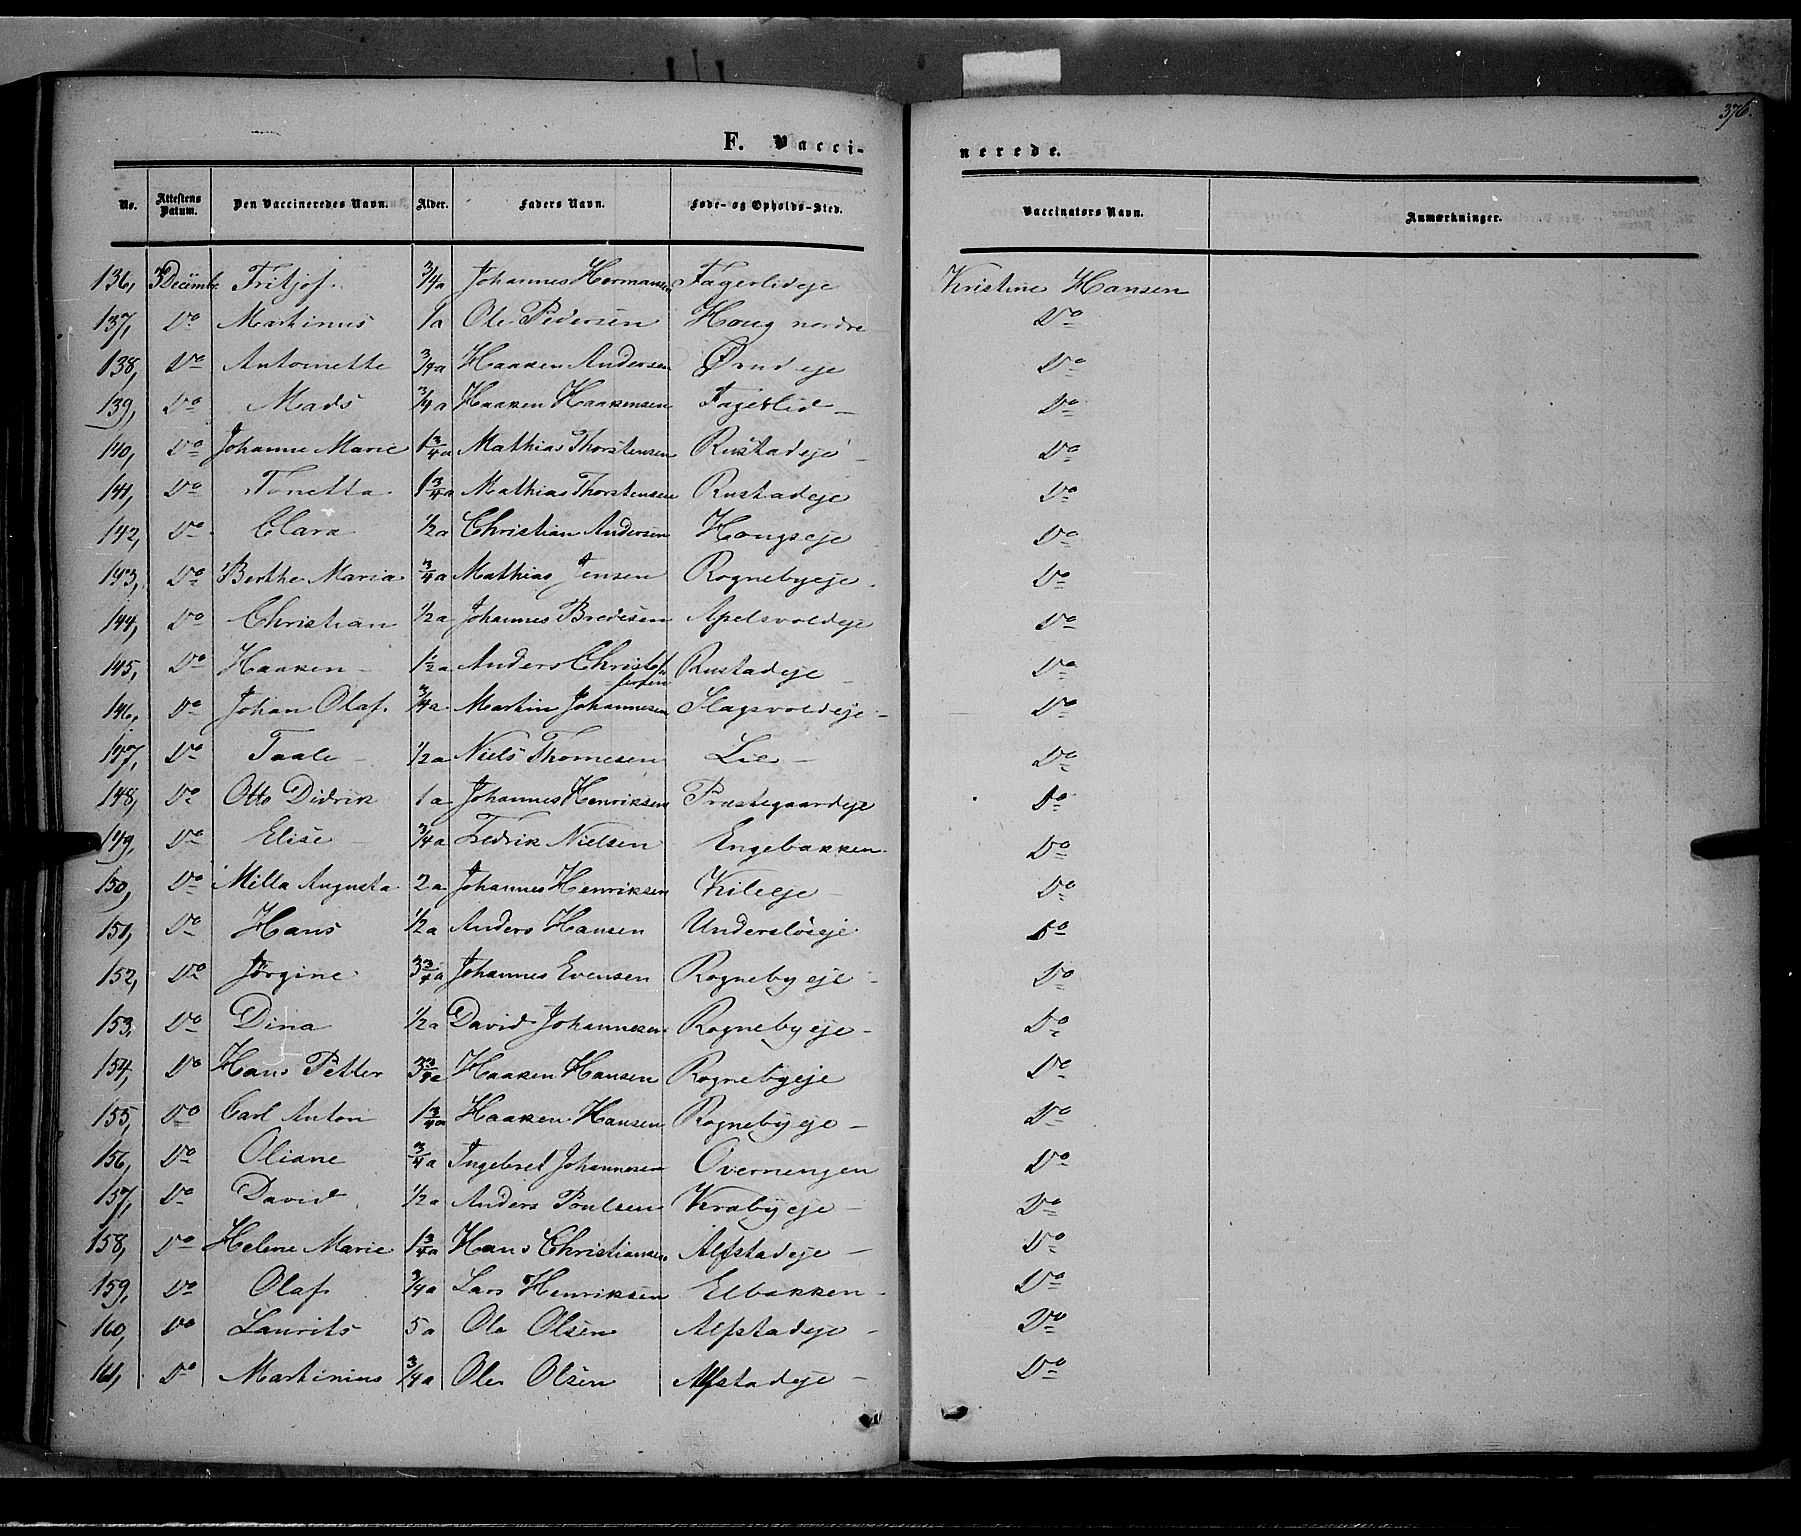 376.
F. Vacci-
nerede.
No. Attestens Datum. Den Vaccineredes Navn. Alder. Faders Navn. Føde- og Opholds-Sted. Vaccinators Navn. Anmærkninger.
136, 3 Decembr. Fritjof. 3/4a Johannes Hermansen Fagerlideje Kristine Hansen
137, Do Martinus 1a Ole Pedersen Houg nordre Do
138, Do Antonette 3/4a Haaken Andersen Ørud eje Do
139, Do Mads 3/4a Haaken Haakensen Fagerlid - Do
140, Do Johanne Marie 1 3/4a Mathias Thorstensen Rustadeje - Do
141, Do Tonetta 1 3/4a Mathias Thorstensen Rustadeje Do
142, Do Clara 1/2a Christian Andersen Hougseje Do
143, Do Berthe Maria 3/4a Mathias Jensen Rognebyeje - Do
144, Do Christian 1/2a Johannes Bredesen Apelsvoldeje Do
145, Do Haaken - 1/2a Anders Christof= Rustadeje - Do
=fersen
146, Do Johan Olaf. 3/4a Martin Johannesen Slagsvoldeje - Do
147, Do Taale - 1/2a Niels Thomesen Lie - Do
148, Do Otto Didrik 1a Johannes Henriksen Præstegaardeje Do
149, Do Elise - 3/4a Fredrik Nielsen Engebakken Do
150, Do Milla Augusta 2a Johannes Henriksen Kileeje - Do
151, Do Hans 1/2a Anders Hansen Undersløseje Do
152, Do Jørgine 3 3/4a Johannes Evensen Rognebyeje - Do
153, Do Dina 1/2a David Johannesen Rognebyeje - Do
154, Do Hans Petter 3 3/4a Haaken Hansen Rognebyeje Do
155, Do Carl Anton 1 3/4a Haaken Hansen Rognebyeje - Do
156, Do Oliane 3/4a Ingebret Johannesen Overnengen Do
157, Do David 1/2a Anders Poulsen Krabyeje - Do
158, Do Helene Marie 1 3/4a Hans Christiansen Alfstadeje - Do
159, Do Olaf 3/4a Lars Henriksen Elbakken - Do
160, Do Laurits 5a Ole Olsen Alfstadeje - Do
161, Do Martinius 3/4a Ole Olsen Alfstadeje - Do